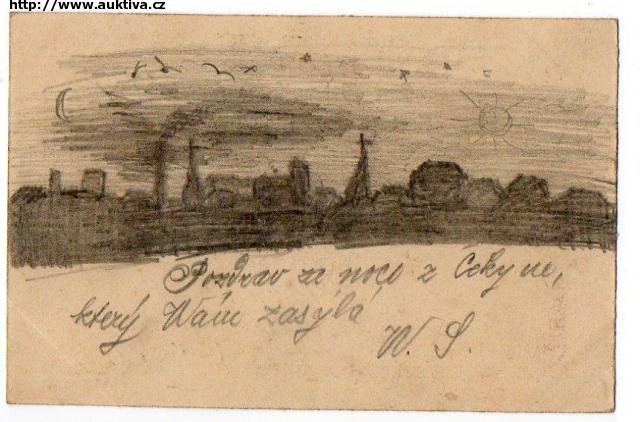 http://www.auktiva.cz
Pozdrav ze noco z Čekyne,
který Vám zasýlá
W. S.